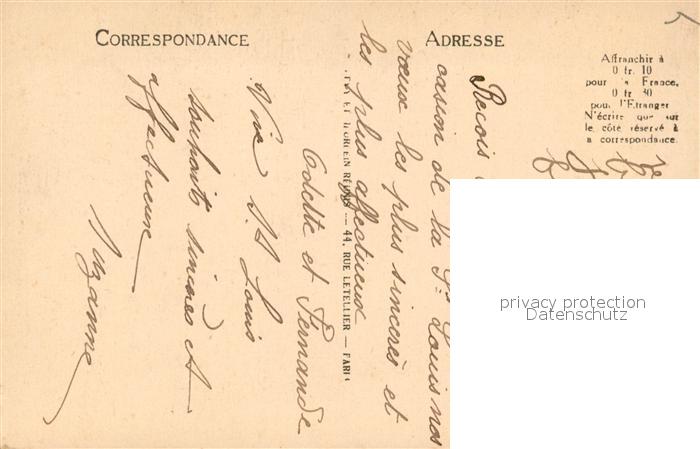 5
CORRESPONDANCE
ADRESSE
Affranchir à
0 fr. 10
pour la France,
0 fr 30
pour l'Etranger
N'écrire que sur
le côté réservé à
la correspondance.
Reçois
casion de la St Louis nos
vœux les plus sincères et
les plus affectueux
Odette et Fernande
Vive St Louis
souhaits sincères et
affectueux
Suzanne
RÉUNIS — 44, RUE LETELLIER — PARIS
privacy protection
Datenschutz